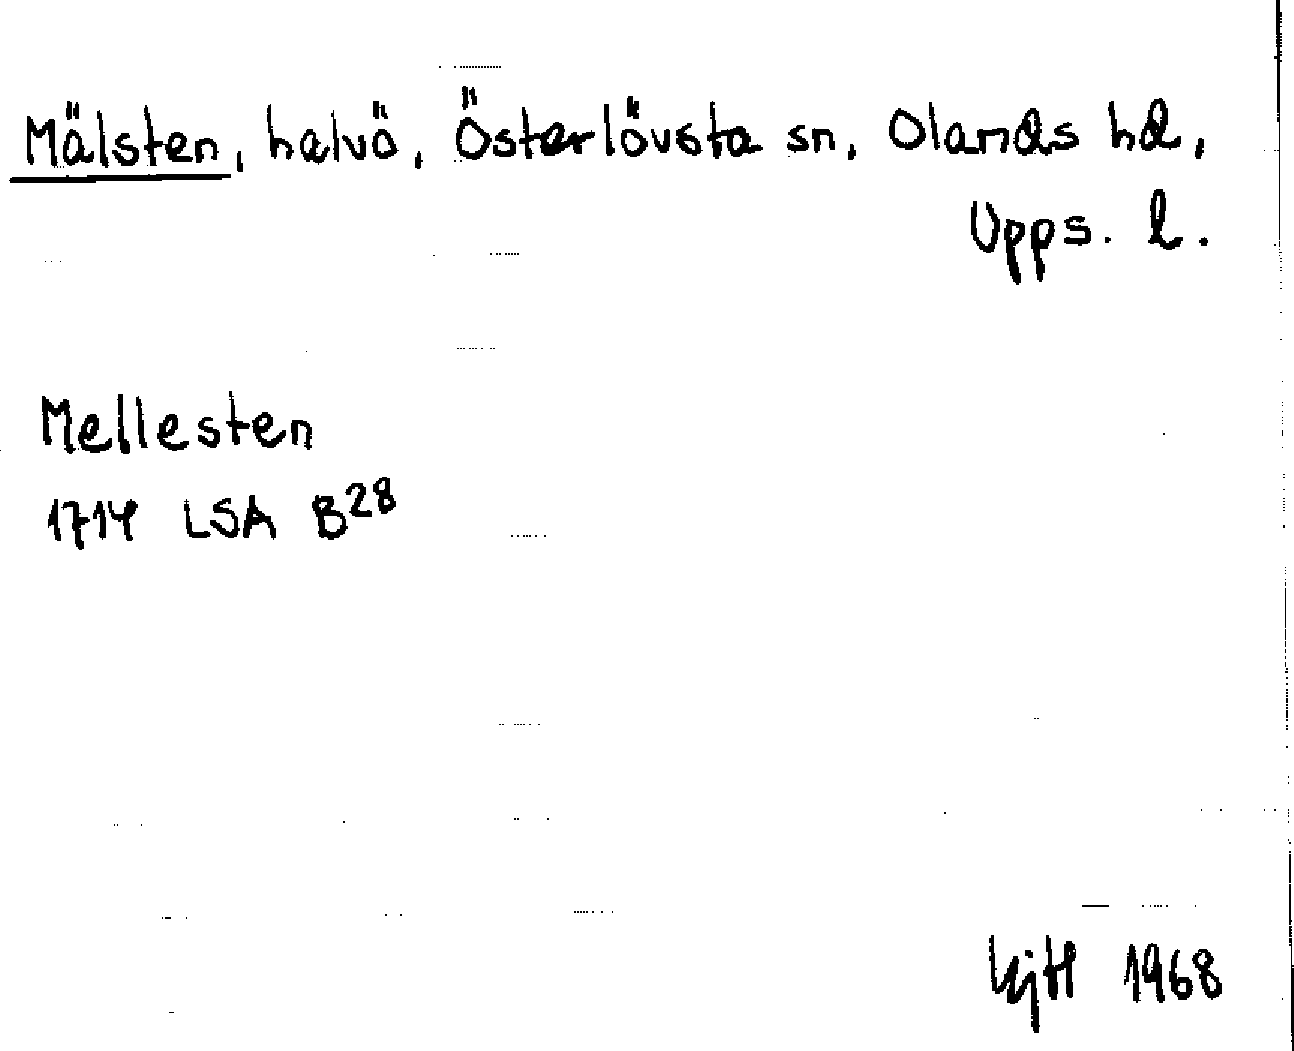 Mälsten, halvö, Österlövsta sn, Olands hd,
Upps. l.
Mellesten
1714 LSA B28
1968